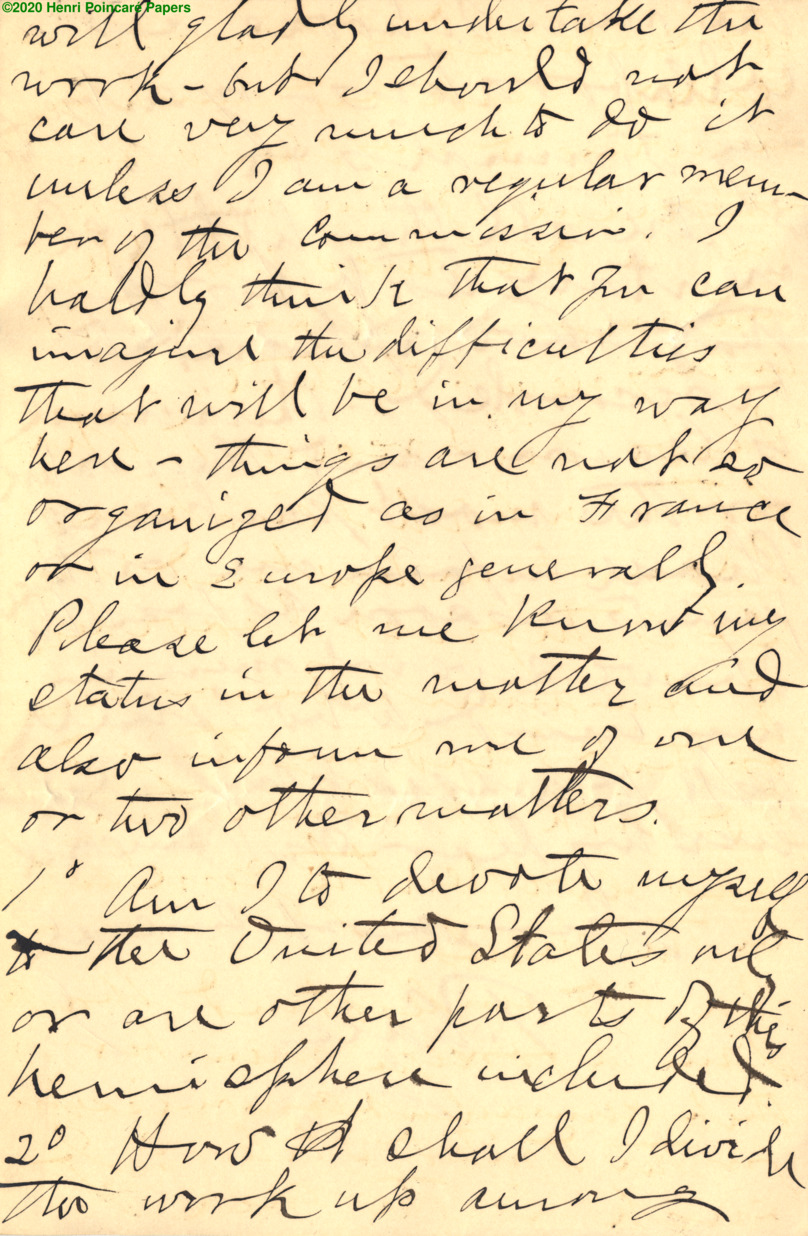 ©2020 Henri Poincaré Papers
will gladly undertake the
work - but I should not
care very much to do it
unless I am a regular mem-
ber of the Commission. I
hardly think that you can
imagine the difficulties
that will be in my way
here - things are not so
organized as in France
or in Europe generally.
Please let me know my
status in the matter and
also inform me of one
or two other matters.
1° Am I to devote myself
to the United States only
or are other parts of this
hemisphere included.
2° How shall I divide
the work up among